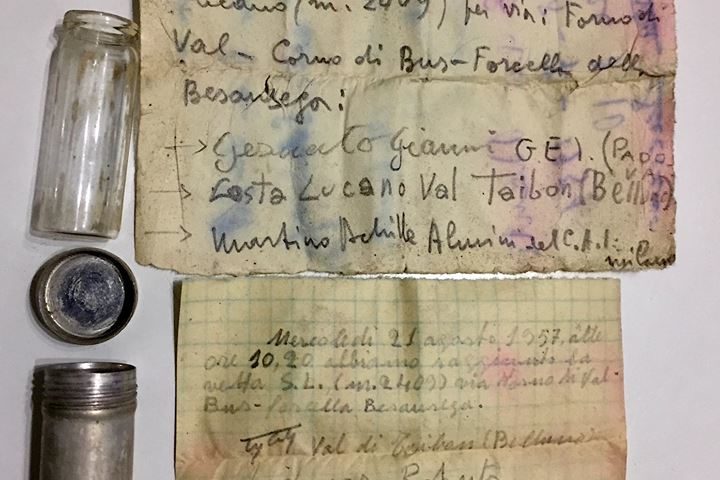 (m. 2409) per via: Forno di
Val - Corno di Bus - Forcella della
Besausega:
→ Gesuato Gianni G.E.I. (PADO
→ Costa Lucano Val Taibon (Bellu
→ Martino Achille Alunni del C.A.I.
milano
Mercoledì 21 agosto, 1957, alle
ore 10,20 abbiamo raggiunto la
vetta S.L. (m. 2409) via Forno di Val-
Bus-forcella Besausega.
Val di Taibon (Belluno)